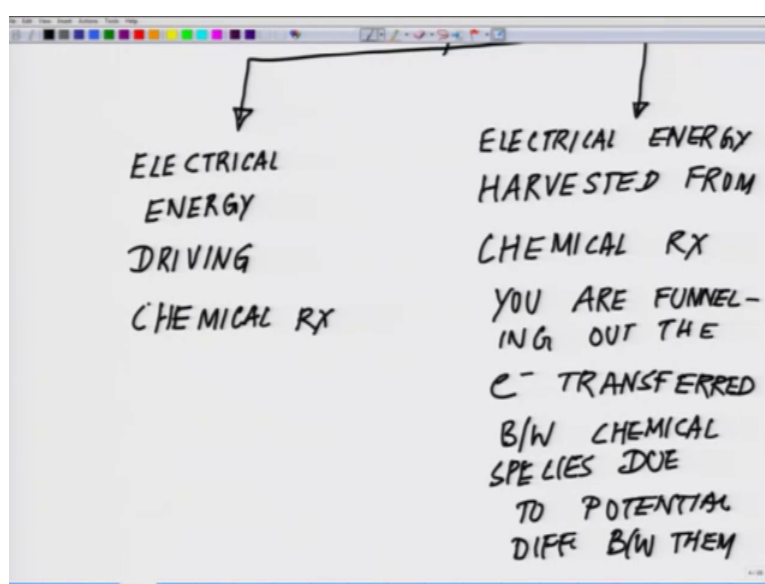 Edit View Insert Actions Tools Help
ELECTRICAL
ENERGY
DRIVING
CHEMICAL RX
ELECTRICAL ENERGY
HARVESTED FROM
CHEMICAL RX
YOU ARE FUNNEL-
ING OUT THE
e⁻ TRANSFERRED
B/W CHEMICAL
SPECIES DUE
TO POTENTIAL
DIFF. B/W THEM